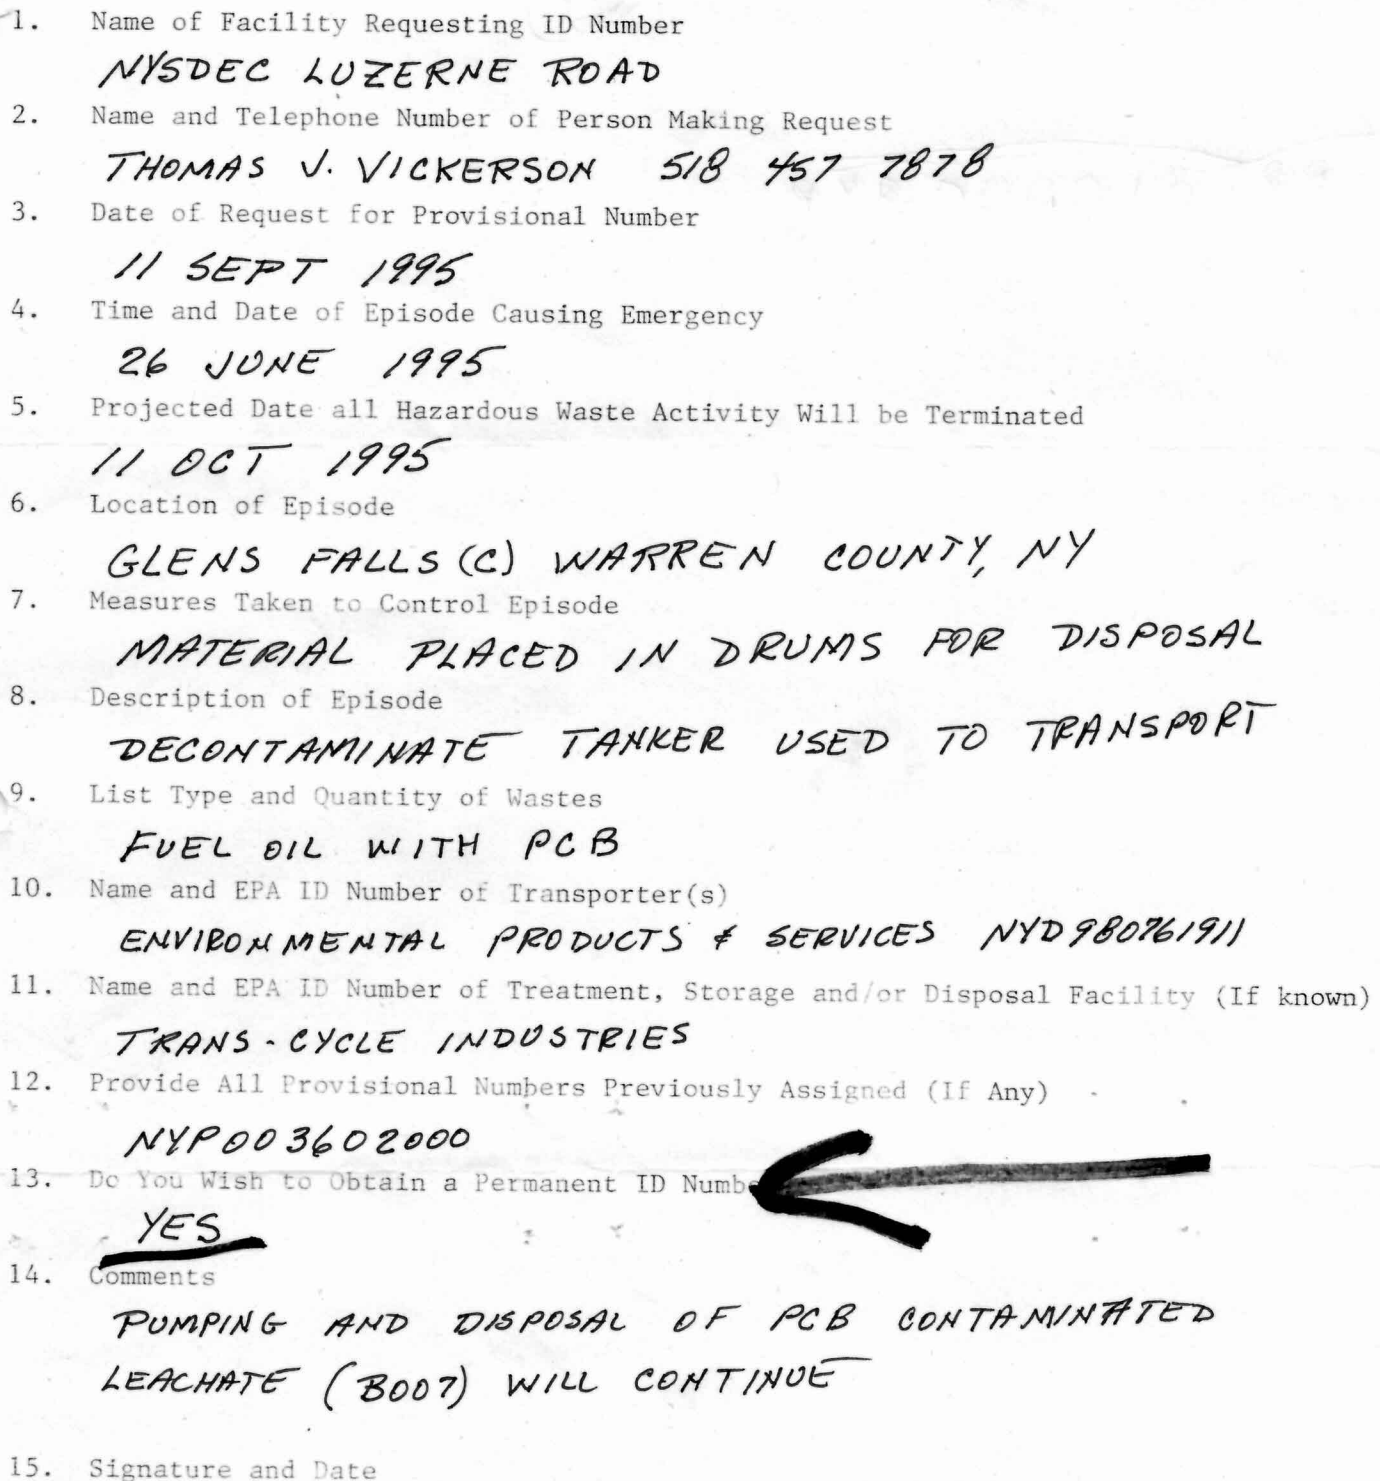 1. Name of Facility Requesting ID Number
NYSDEC LUZERNE ROAD
2. Name and Telephone Number of Person Making Request
THOMAS V. VICKERSON 518 457 7878
3. Date of Request for Provisional Number
11 SEPT 1995
4. Time and Date of Episode Causing Emergency
26 JUNE 1995
5. Projected Date all Hazardous Waste Activity Will be Terminated
11 OCT 1995
6. Location of Episode
GLENS FALLS (C) WARREN COUNTY, NY
7. Measures Taken to Control Episode
MATERIAL PLACED IN DRUMS FOR DISPOSAL
8. Description of Episode
DECONTAMINATE TANKER USED TO TRANSPORT
9. List Type and Quantity of Wastes
FUEL OIL WITH PCB
10. Name and EPA ID Number of Transporter(s)
ENVIRONMENTAL PRODUCTS & SERVICES NYD980761911
11. Name and EPA ID Number of Treatment, Storage and/or Disposal Facility (If known)
TRANS-CYCLE INDUSTRIES
12. Provide All Provisional Numbers Previously Assigned (If Any)
NYP003602000
13. Do You Wish to Obtain a Permanent ID Numbe
YES
14. Comments
PUMPING AND DISPOSAL OF PCB CONTAMINATED
LEACHATE (B007) WILL CONTINUE
15. Signature and Date